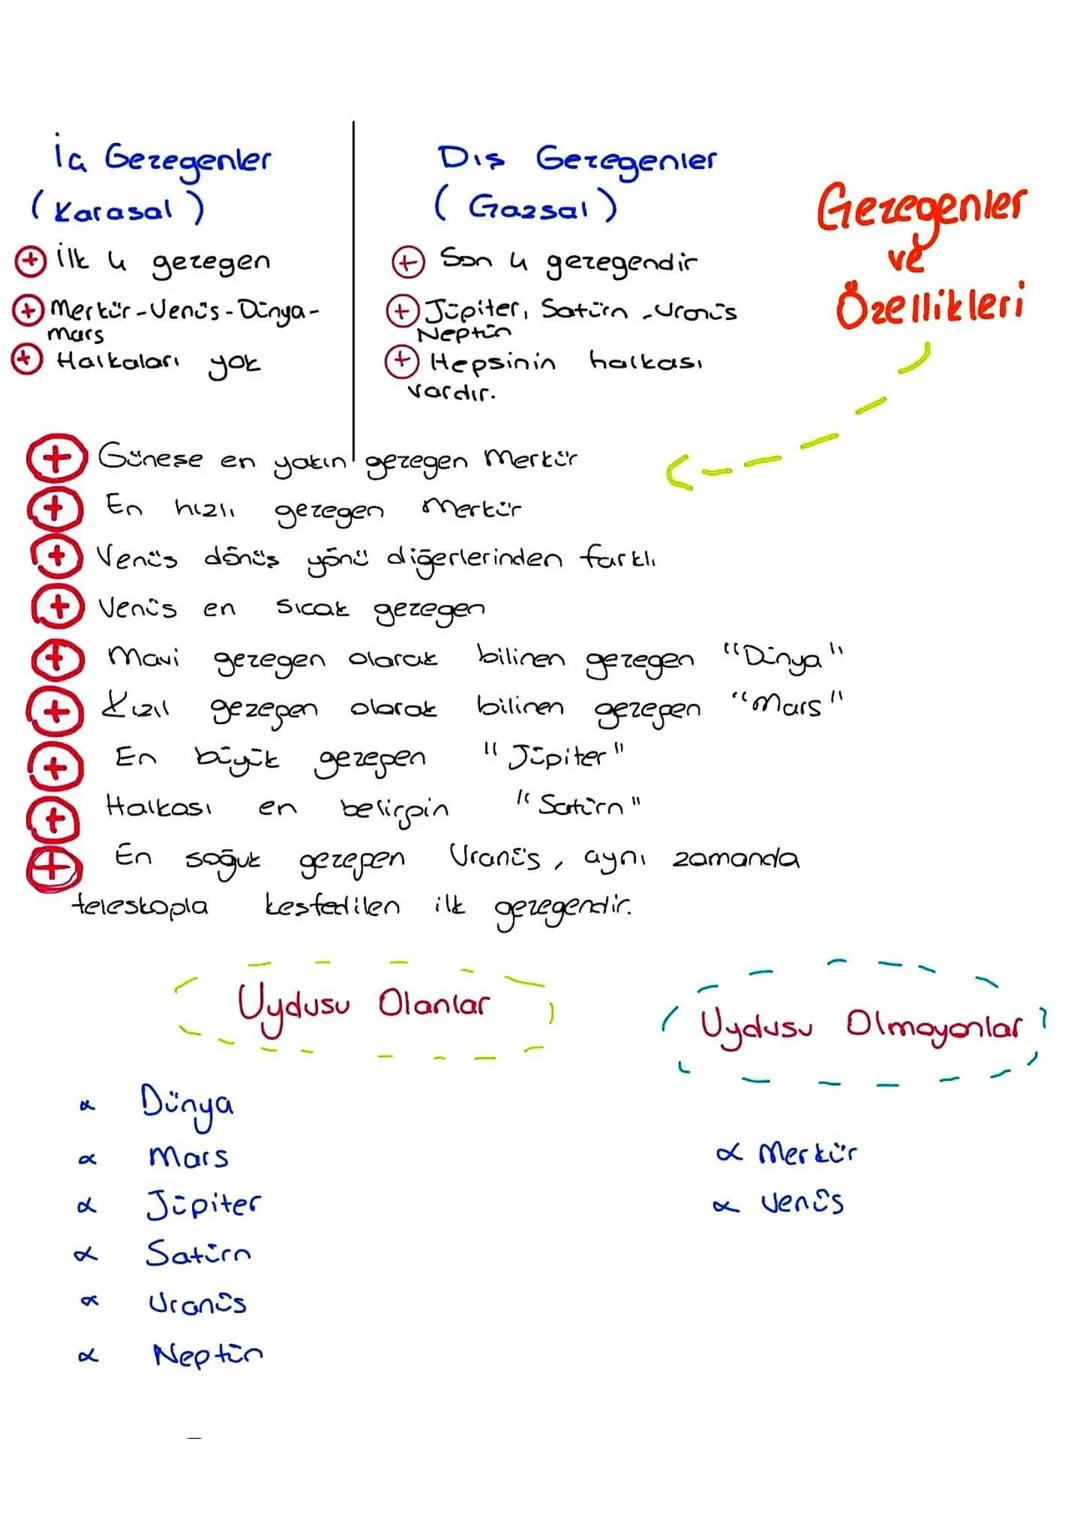 İç Gezegenler
(Karasal)
+ İlk 4 gezegen
+ Merkür-Venüs-Dünya-
Mars
+ Halkaları yok
Dış Gezegenler
(Gazsal)
+ Son 4 gezegendir
+ Jüpiter, Satürn -Uranüs
Neptün
+ Hepsinin halkası
vardır.
Gezegenler
ve
Özellikleri
+ Güneşe en yakın gezegen Merkür
+ En hızlı gezegen Merkür
+ Venüs dönüş yönü diğerlerinden farklı
+ Venüs en sıcak gezegen
+ Mavi gezegen olarak bilinen gezegen "Dünya"
+ Kızıl gezegen olarak bilinen gezegen "Mars"
+ En büyük gezegen "Jüpiter"
+ Halkası en belirgin "Satürn"
+ En soğuk gezegen Uranüs, aynı zamanda
teleskopla keşfedilen ilk gezegendir.
Uydusu Olanlar
α Dünya
α Mars
α Jüpiter
α Satürn
α Uranüs
α Neptün
Uydusu Olmayanlar
α Merkür
α Venüs